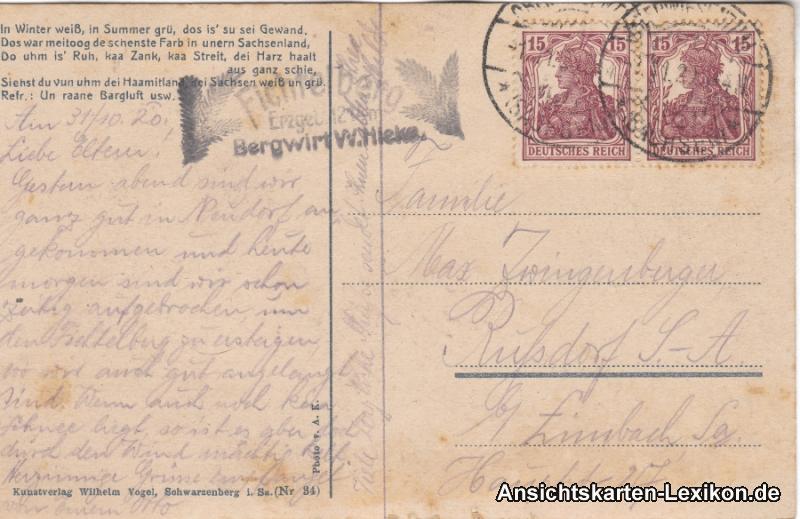 In Winter weiß, in Summer grü, dos is' su sei Gewand.
Dos war meitoog de schenste Farb in unern Sachsenland,
Do uhm is' Ruh, kaa Zank, kaa Streit, dei Harz haalt
aus ganz schie,
Siehst du vun uhm dei Haamitland, bei Sachsen weiß un grü.
Refr.: Un raane Bargluft usw.
Fichtelberg
Erzgeb. 12
Bergwirt W. Hieke.
Am 31/10. 20.
Liebe Eltern!
Gestern abend sind wir
ganz gut in Neudorf an
gekommen und heute
morgen sind wir schon
zeitig aufgebrochen um
den Fichtelberg zu ersteigen
wo wir auch gut angelangt
sind. Wenn auch noch kein
Schnee liegt so ist es aber doch
durch den Wind mächtig kalt
Grüsse
von Otto
Viele
Photo v. A. K.
15 15
DEUTSCHES REICH DEUTSCHES REICH
Familie
Max Zwingenberger
Rußdorf S.-A.
b/ Limbach Sa.
Kunstverlag Wilhelm Vogel, Schwarzenberg i. Sa. (Nr 34)
Ansichtskarten-Lexikon.de